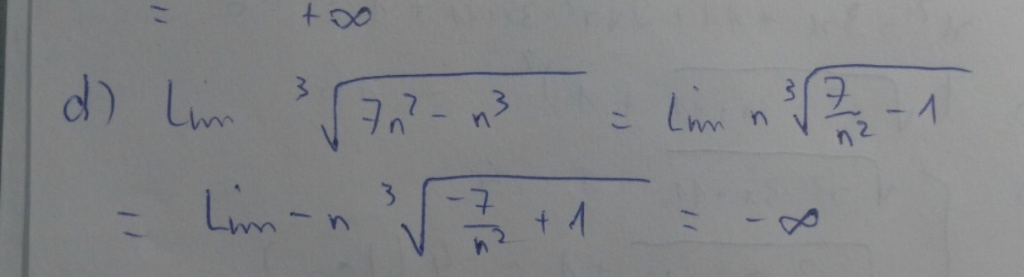 = +∞
d) Lim ∛(7n² - n³) = Lim n ∛(7/n² - 1)
= Lim - n ∛(-7/n² + 1) = - ∞